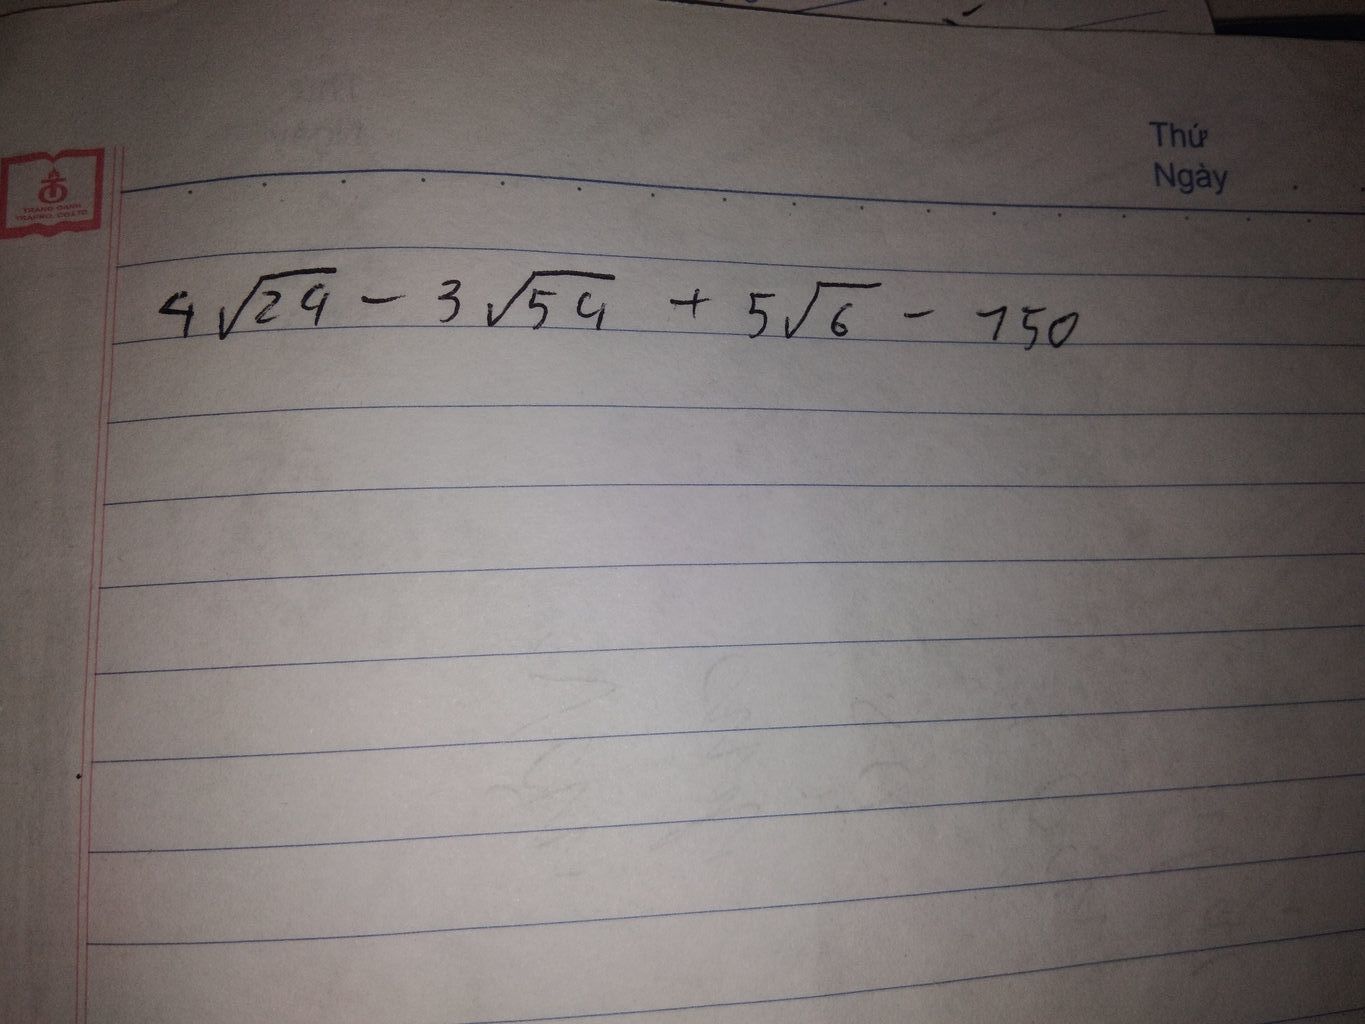 Thứ
Ngày
4√24 - 3√54 + 5√6 - 150